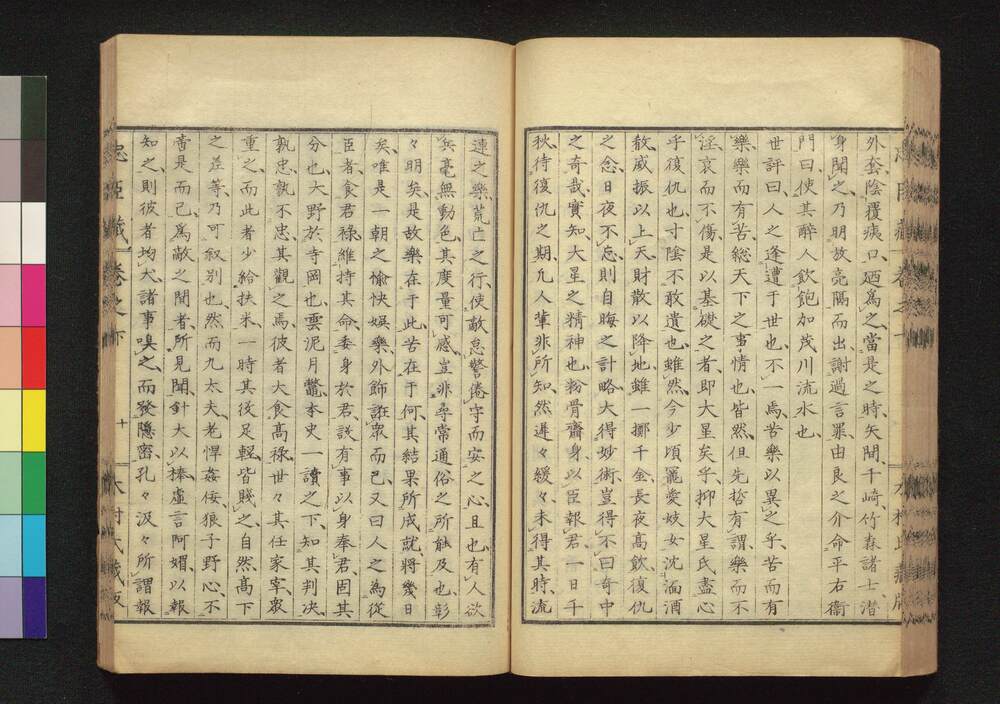 外套、陰覆痍口、廼為之、當是之時、矢間、千崎、竹森諸士、潜
身聞之、乃明放亮隔而出謝過言罪、由良之介命平右衞
門曰、使其醉人飲飽加茂川流水也、
世評曰、人之逢遭于世也、不一焉、苦樂以異之乎、苦而有
樂、樂而有苦、総天下之事情也、皆然、但先哲有謂、樂而不
淫、哀而不傷、是以基礎之者、即大星矣乎、抑大星氏盡心
乎復仇也、寸陰不敢遺也、雖然今少頃寵愛妓女、沈湎酒
殽、威振以上天、財散以降地、雖一擲千金、長夜高飲、復仇
之念、日夜不忘、則自晦之計略、大得妙術、豈得不曰奇中
之奇哉、實知大星之精神也、粉骨齏身、以臣報君、一日千
秋、待復仇之期、凡人輩非所知、然遅々緩々、未得其時、流
連之樂、荒亡之行、使敵怠警倦守而安之心、且也有人欲
兵、毫無動色、其度量可感、豈非尋常通俗之所能及也、彰
々明矣、是故樂在于此、苦在于何、其結果所成就、將幾日
矣、唯是一朝之愉快娯樂、外飾誑衆而已、又曰、人之為從
臣者、食君禄、維持其命、委身於君、設有事、以身奉君、因其
分也、大野於寺岡也、雲泥月鼈、本史一讀之下、知其判决、
孰忠孰不忠、其觀之焉、彼者大食高禄、世々其任家宰、衆
重之、而此者少給扶米、一時其後足輕、皆賤之、自然高下
之差等、乃可叙別也、然而九太夫老悍姦佞、狼子野心、不
啻是而已、為敵之間者、所見聞、針大以捧、虚言阿媚以報
知之、則彼者均犬、諸事嗅之、而發隱密、孔々汲々、所謂報
忠臣藏 卷之下
十